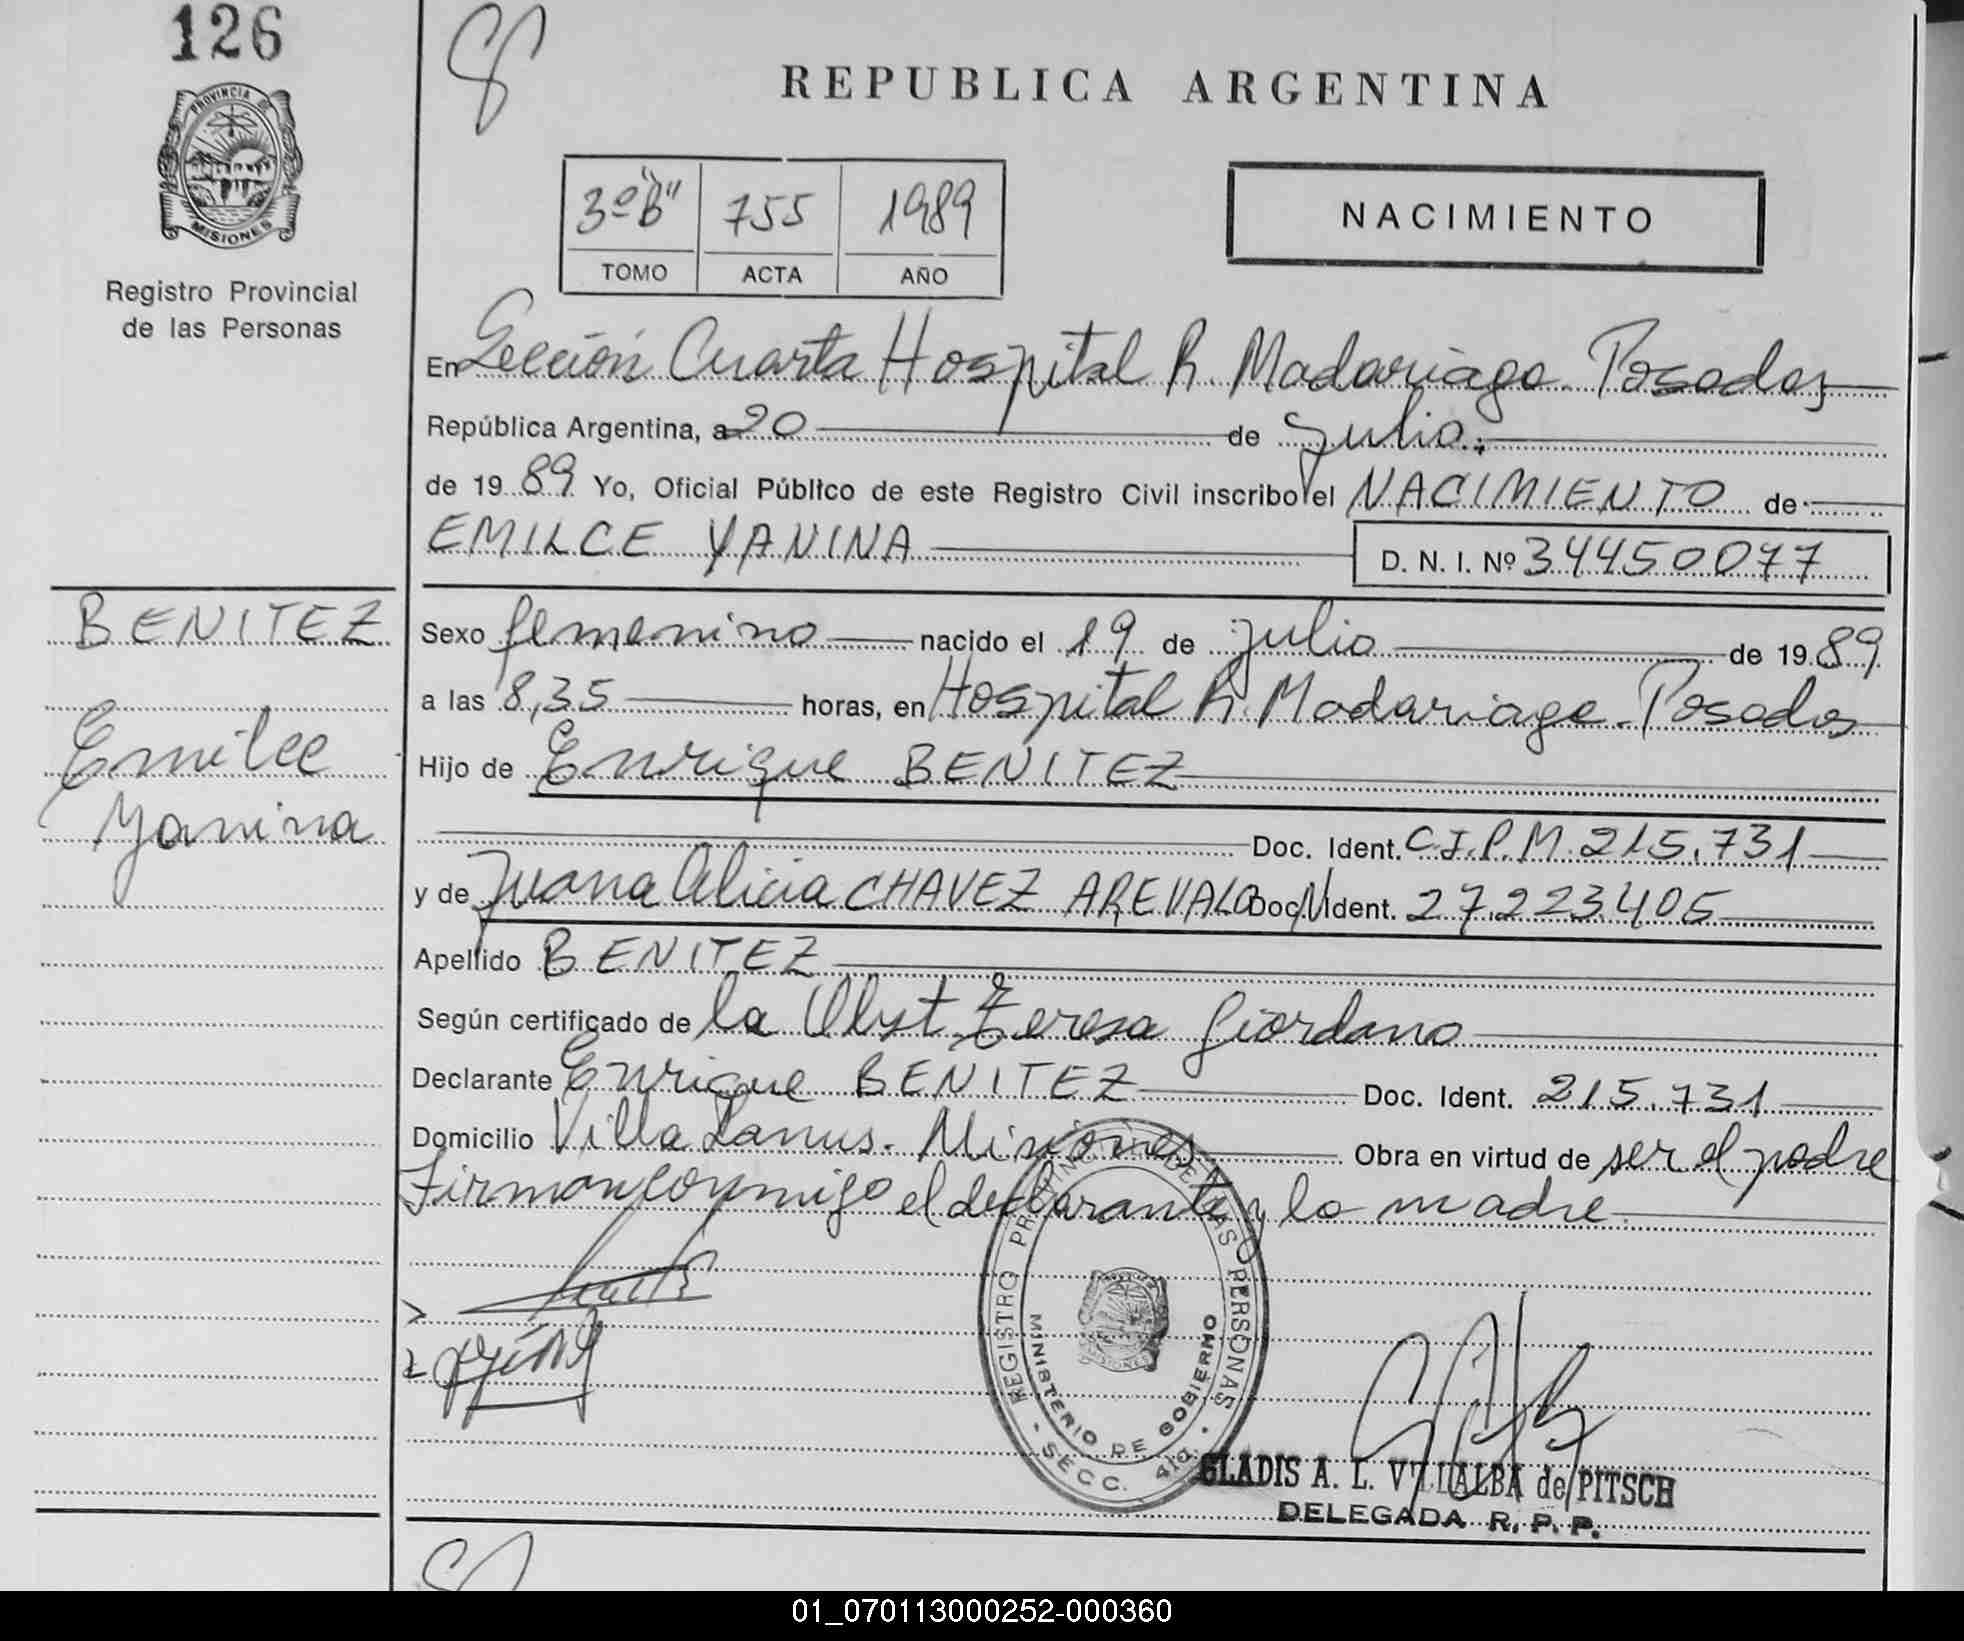 126
PROVINCIA DE
MISIONES
Registro Provincial
de las Personas
BENITEZ
Emilce
Yanina
REPUBLICA ARGENTINA
3º "B" 755 1989
TOMO ACTA AÑO
NACIMIENTO
En Sección Cuarta Hospital R. Madariaga. Posadas
República Argentina, a 20 de julio.;
de 19 89 Yo, Oficial Público de este Registro Civil inscribo el NACIMIENTO de
EMILCE YANINA D. N. I. Nº 34450077
Sexo femenino nacido el 19 de julio de 19 89
a las 8,35 horas, en Hospital R. Madariaga. Posadas
Hijo de Enrique BENITEZ
Doc. Ident. C.I.P.M. 215.731
y de Juana Alicia CHAVEZ AREVALO Doc. Ident. 27.223.405
Apellido BENITEZ
Según certificado de la Obst Teresa Giordano
Declarante Enrique BENITEZ Doc. Ident. 215.731
Domicilio Villa Lanus. Misiones Obra en virtud de ser el padre
Firman conmigo el declarante y la madre.
REGISTRO PROVINCIAL DE LAS PERSONAS
MINISTERIO DE GOBIERNO
- SECC. 4ta. -
MISIONES
GLADIS A. L. VILLALBA de PITSCH
DELEGADA R. P. P.
01_070113000252-000360